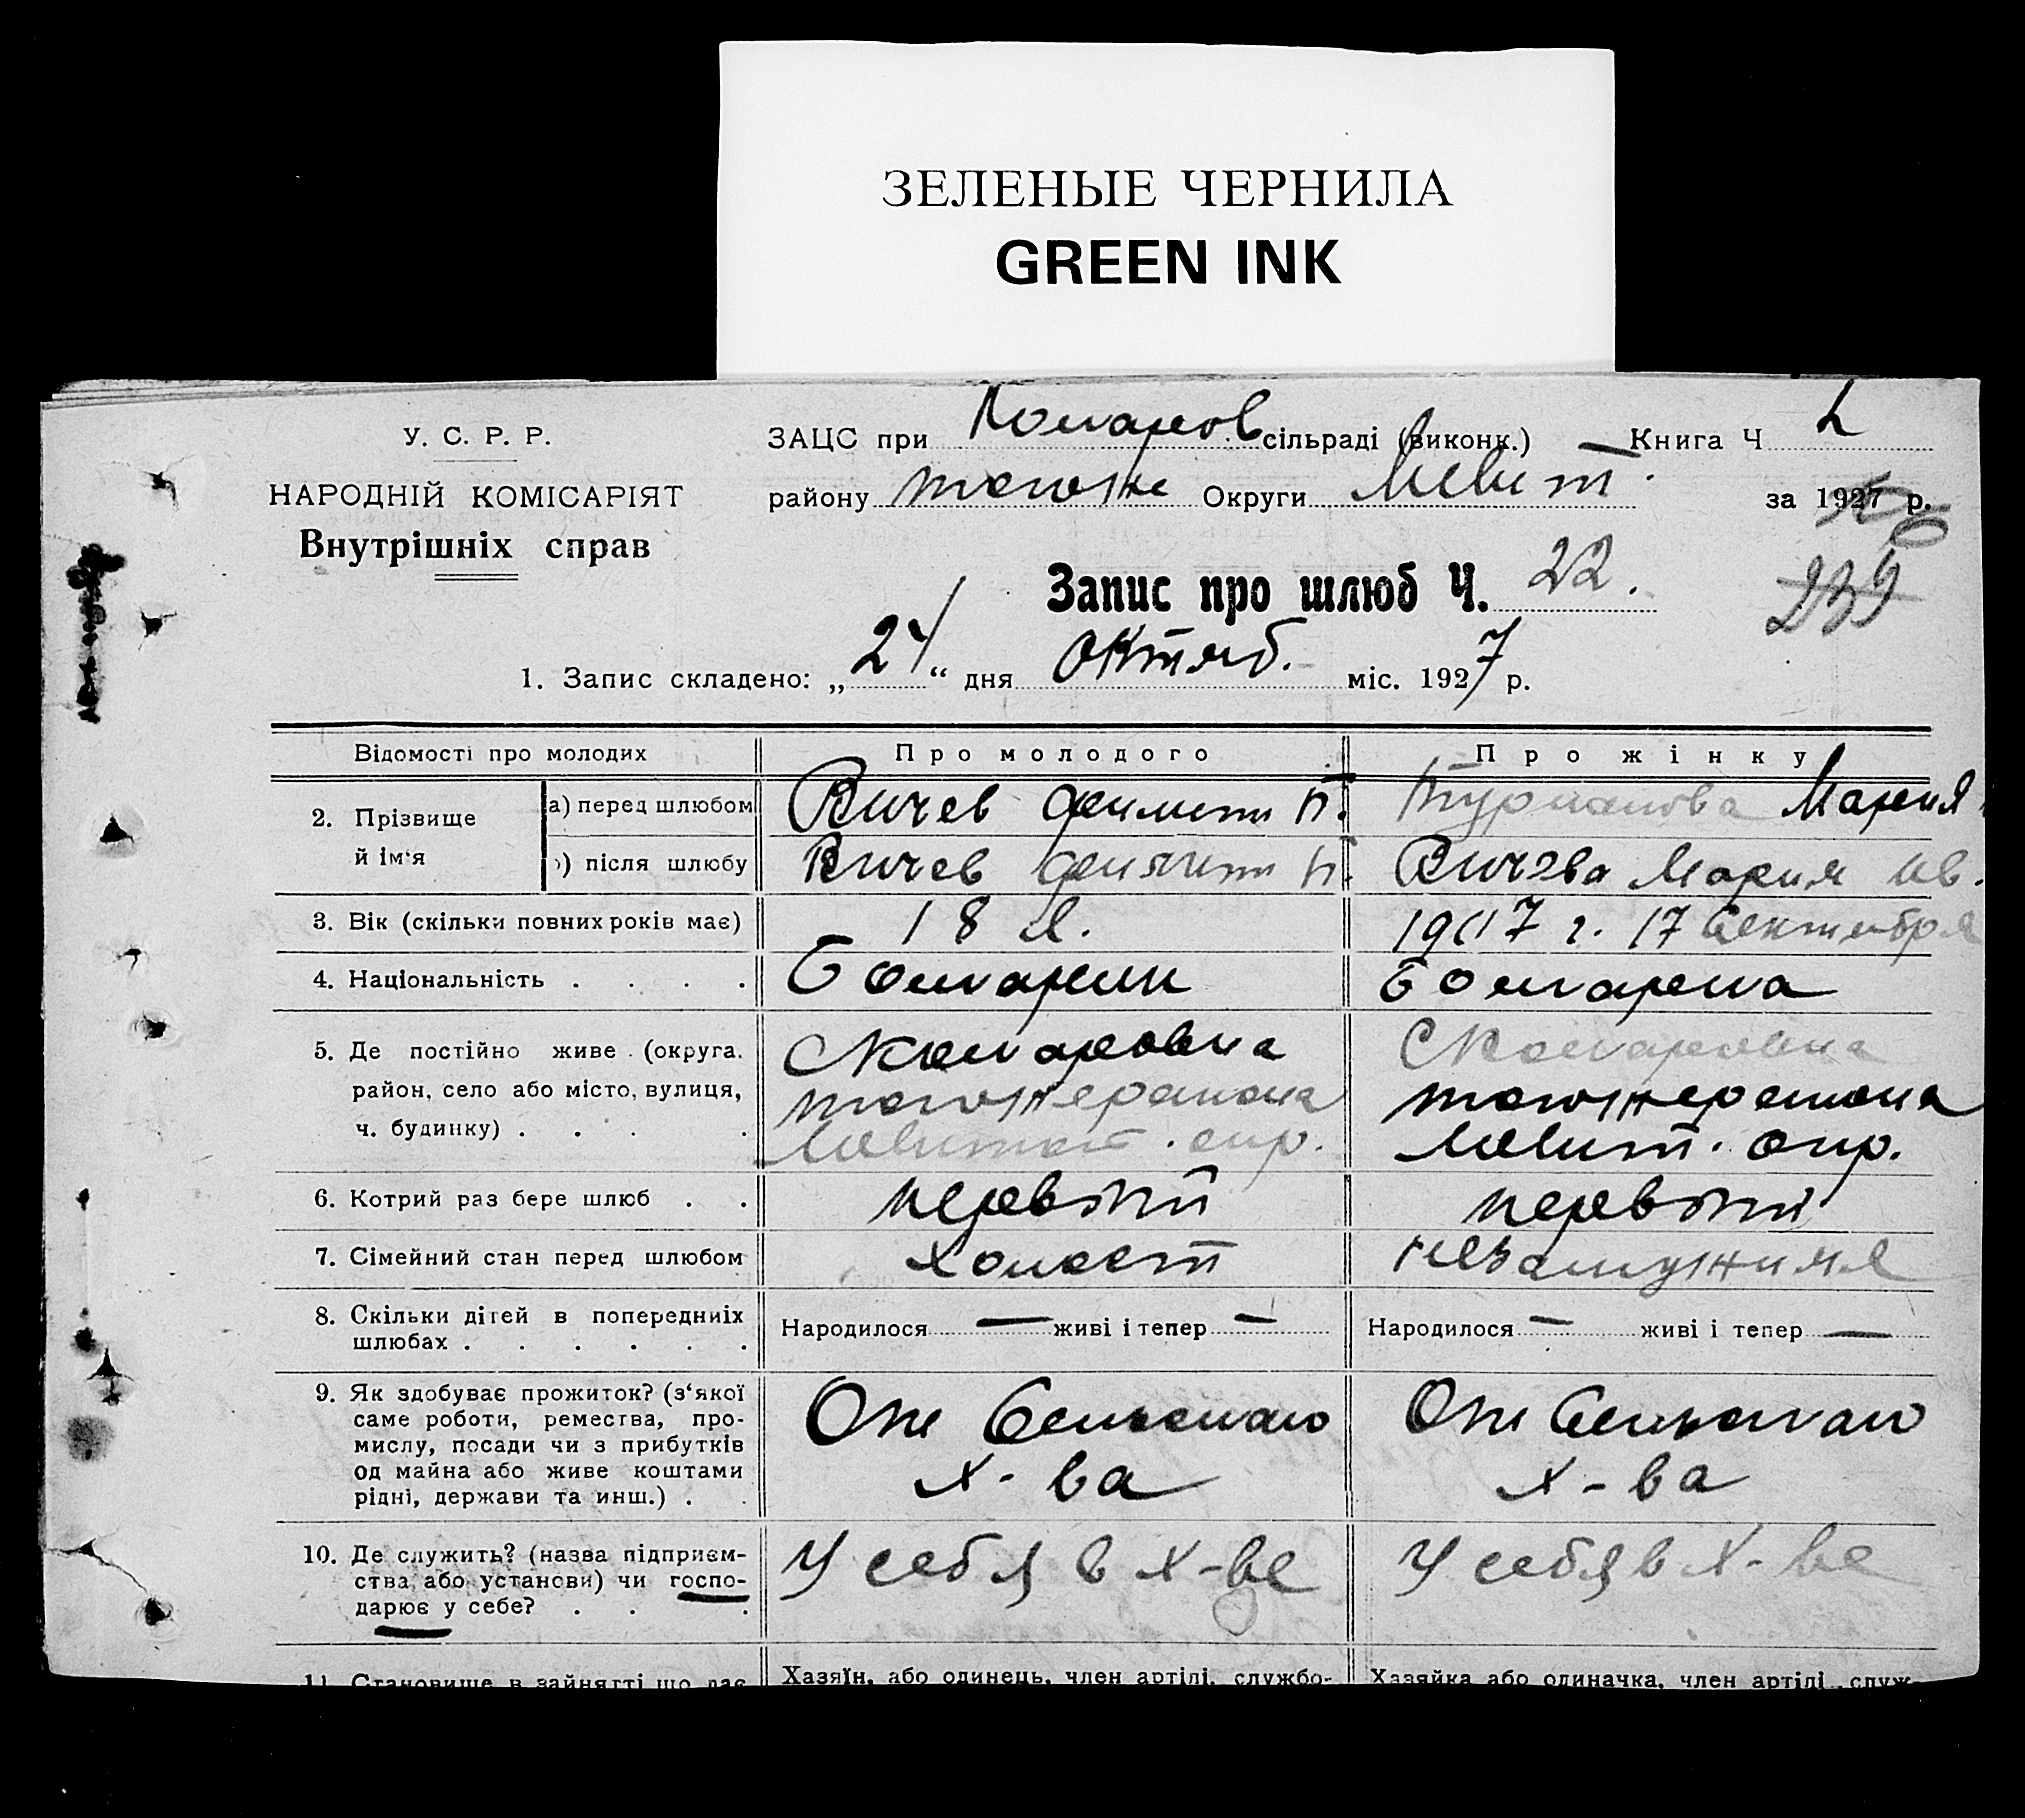 ЗЕЛЕНЫЕ ЧЕРНИЛА
GREEN INK
У. С. Р. Р.
НАРОДНІЙ КОМІСАРІЯТ
Внутрішніх справ
ЗАЦС при Комаров сільраді (виконк.) — Книга Ч
району Округи Меліт. за 1927 р.
239
Запис про шлюб Ч. 22.
1. Запис складено: „24“ дня Октяб. міс. 1927 р.
Відомості про молодих Про молодого Про жінку
2. Прізвище й ім‘я
а) перед шлюбом Вичев Димитр П. Мария
б) після шлюбу Вичев Димитр П. Вичева Мария Ив.
3. Вік (скільки повних років має) 18 л. 1907 г. 17 Сентября
4. Національність . . . . Болгарин Болгарка
5. Де постійно живе (округа, район, село або місто, вулиця, ч. будинку) . . . .
С Комаровка
района
Мелитоп. окр.
С Комаровка
района
Мелит. окр.
6. Котрий раз бере шлюб . . первый первый
7. Сімейний стан перед шлюбом холост незамужняя
8. Скільки дітей в попередниіх шлюбах . . . . . .
Народилося — живі і тепер —
Народилося — живі і тепер —
9. Як здобуває прожиток? (з‘якої саме роботи, ремества, промислу, посади чи з прибутків од майна або живе коштами рідні, держави та инш.) . .
От Сельского
х-ва
От Сельского
х-ва
10. Де служить? (назва підприємства або установи) чи господарює у себе? . . .
У себя в х-ве
У себя в х-ве
11. Становище в зайнятті що дає
Хазяїн, або одинець, член артілі, службо-
Хазяйка або одиначка, член артілі, служ-